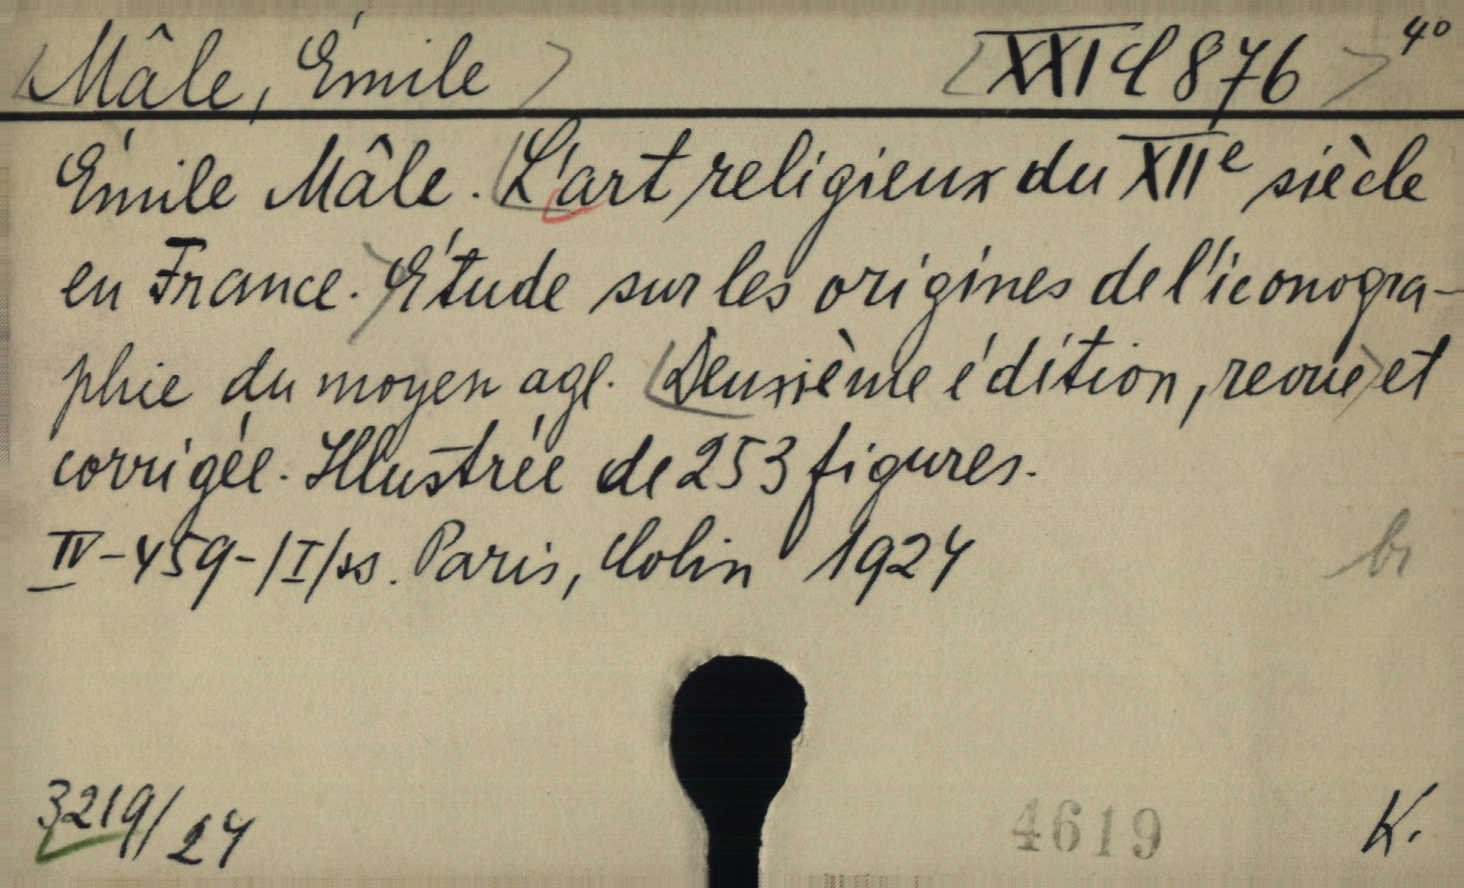 Mâle, Émile XXI C 876 4°
Émile Mâle. L'art religieux du XIIe siècle
en France. Étude sur les origines de l'iconogra-
phie du moyen age. Deuxième édition, revue et
corrigée. Illustrée de 253 figures.
IV-459-/I/ss. Paris, Colin 1924
br
3219/24
4619
K.